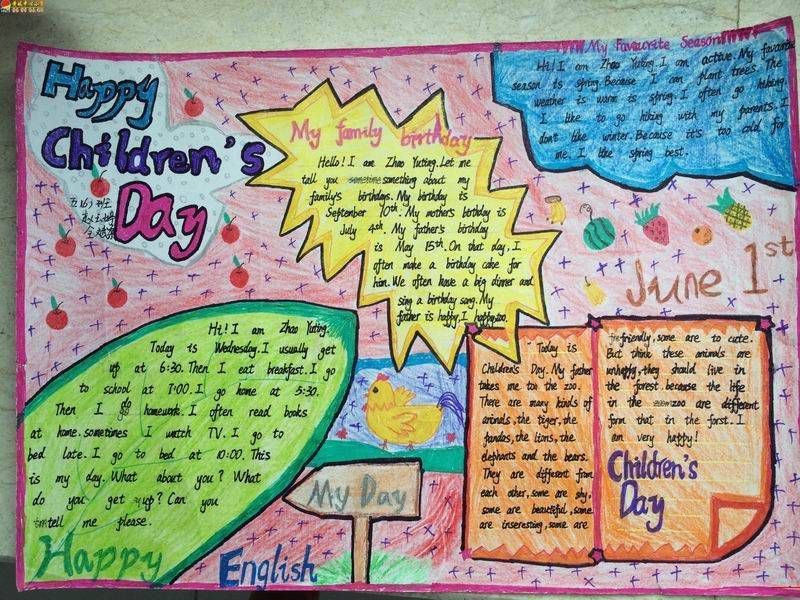 Happy
Children's
Day
My Favourite Season
Hi! I am Zhao Yuting. I am active. My favourite
season is spring. Because I can plant trees. The
weather is warm is spring. I often go hiking.
I like to go hiking with my parents. I
don't like winter. Because it's too cold for
me. I like spring best.
My family birthday
Hello! I am Zhao Yuting. Let me
tell you something about my
family's birthdays. My birthday is
September 10th. My mother's birthday is
July 4th. My father's birthday
is May 15th. On that day, I
often make a birthday cake for
him. We often have a big dinner and
sing a birthday song. My
father is happy, I happy too.
June 1st
Hi! I am Zhao Yuting.
Today is Wednesday. I usually get
up at 6:30. Then I eat breakfast. I go
to school at 7:00. I go home at 5:30.
Then I do homework. I often read books
at home. sometimes I watch TV. I go to
bed late. I go to bed at 10:00. This
is my day. What about you? What
do you get up? Can you
tell me please.
My Day
Happy
English
Today is
Children's Day. My father
takes me to the zoo.
There are many kinds of
animals, the tiger, the
pandas, the lions, the
elephants and the bears.
They are different from
each other, some are shy,
some are beautiful, some
are insteresting, some are
friendly, some are to cute.
But think these animals are
unhappy, they should live in
the forest. because the life
in the zoo are different
form that in the forst. I
am very happy!
Children's
Day